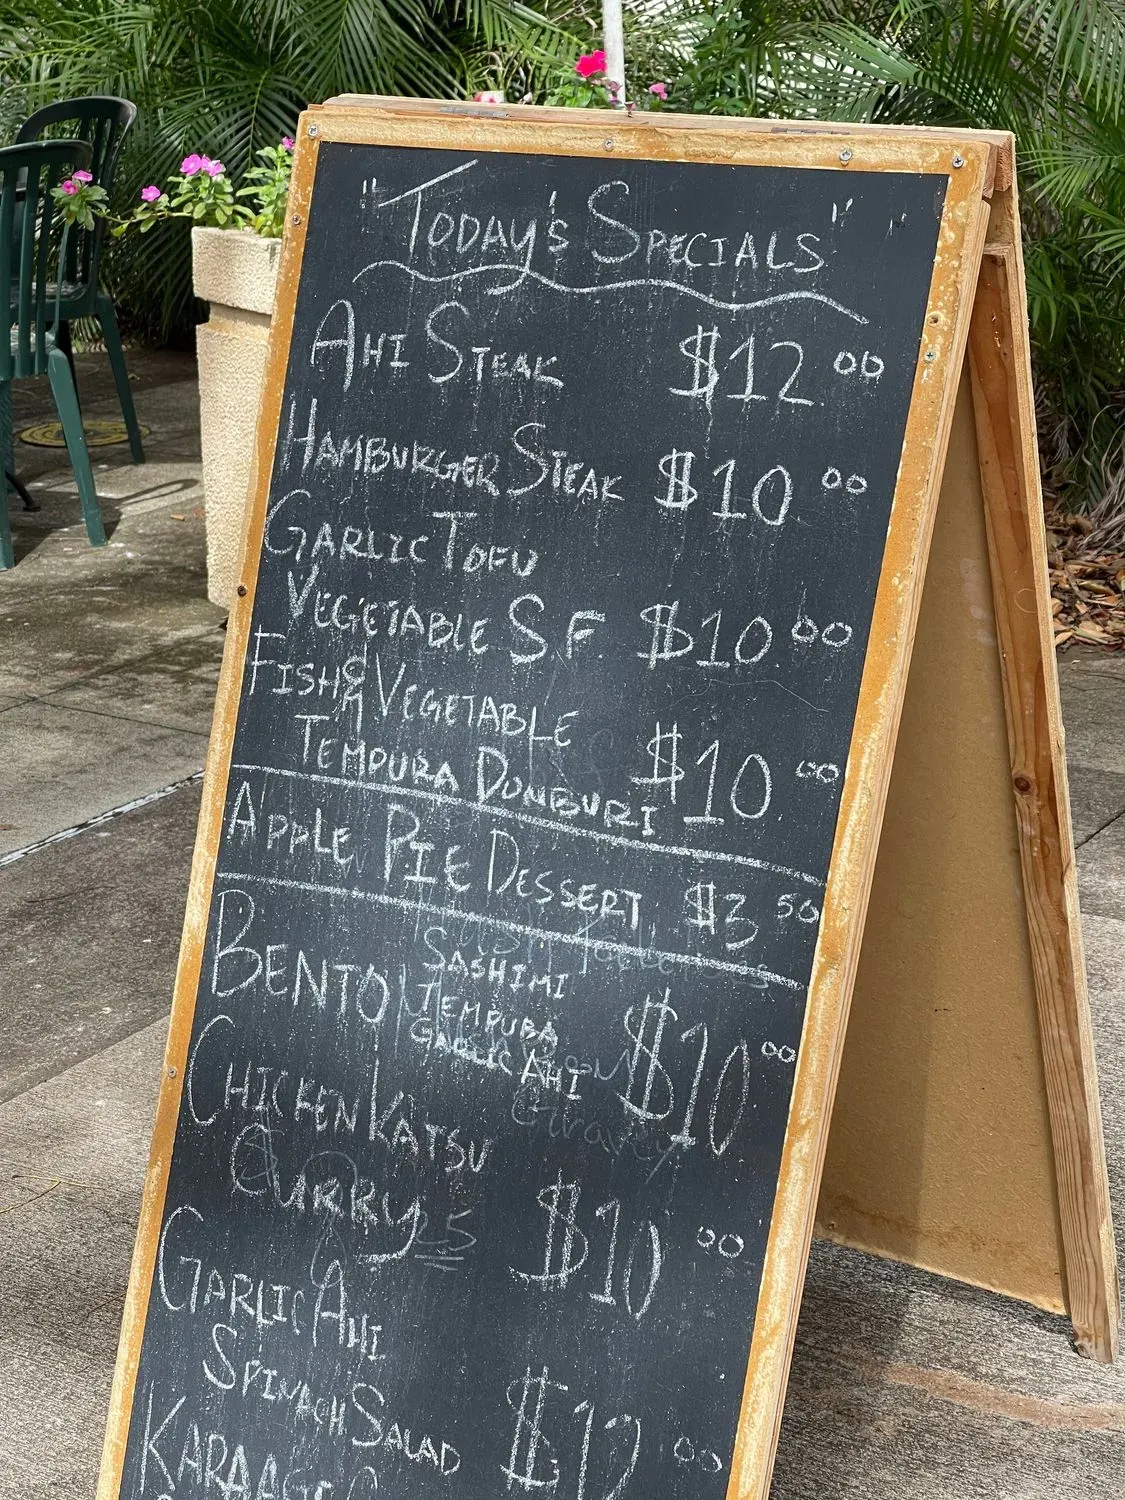 "TODAY'S SPECIALS"
AHI STEAK $12 00
HAMBURGER STEAK $10 00
GARLIC TOFU
VEGETABLE S F. $10 00
FISH & VEGETABLE
TEMPURA DONBURI $10 00
APPLE PIE DESSERT $3 50
BENTO SASHIMI
TEMPURA
GARLIC AHI $10 00
CHICKEN KATSU
CURRY $10 00
GARLIC AHI
SPINACH SALAD $12 00
KARAAGE